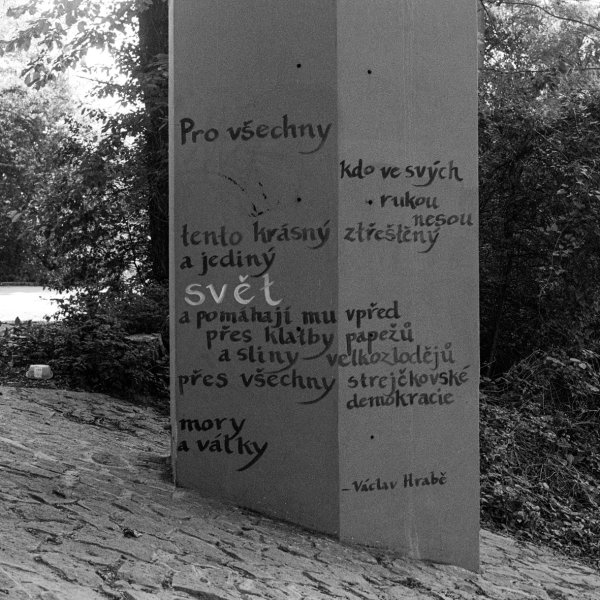 Pro všechny
kdo ve svých
rukou
nesou
tento krásný ztřeštěný
a jediný
svět
a pomáhají mu vpřed
přes klatby papežů
a sliny velkozlodějů
přes všechny strejčkovské
demokracie
mory
a války
- Václav Hrabě